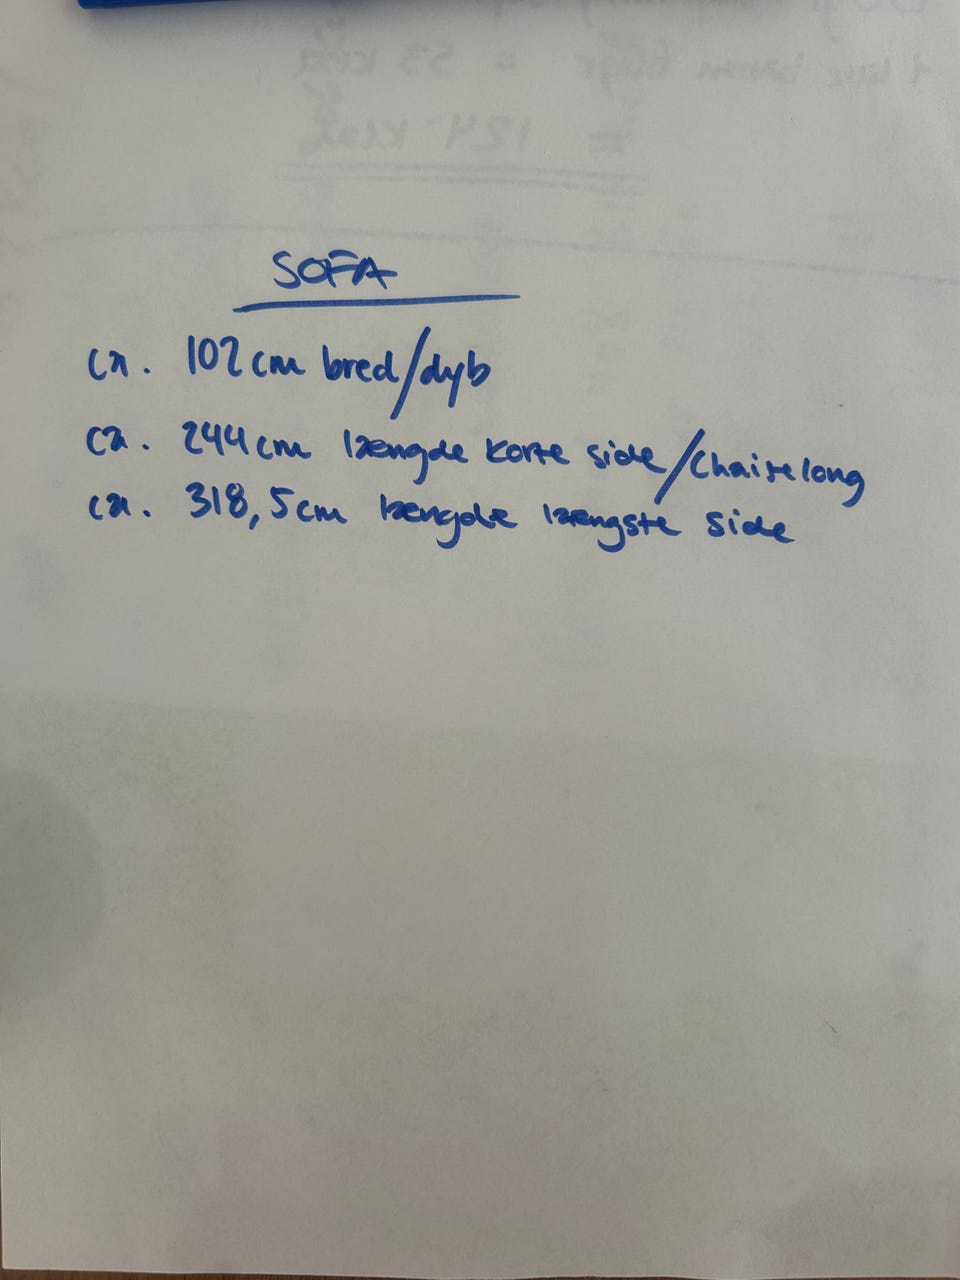 SOFA
ca. 102 cm bred/dyb
ca. 244 cm længde korte side/chaiselong
ca. 318,5 cm længde længste side